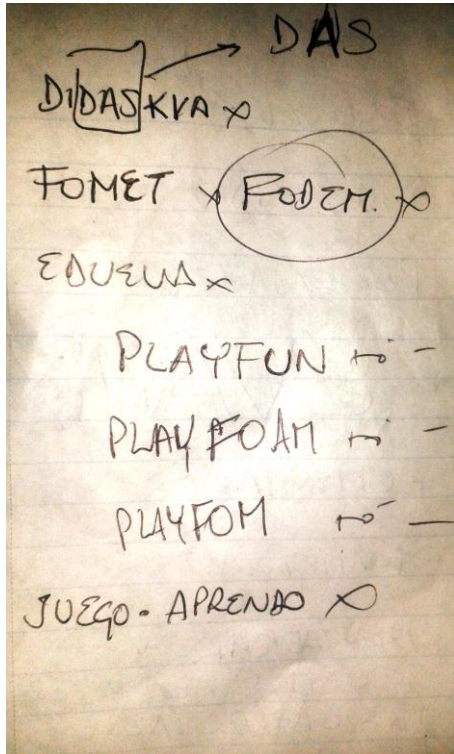 DAS
DIDASKVA x
FOMET x FODEM. x
EDUEUA x
PLAYFUN
PLAYFOAM
PLAYFOM
JUEGO - APRENDO x